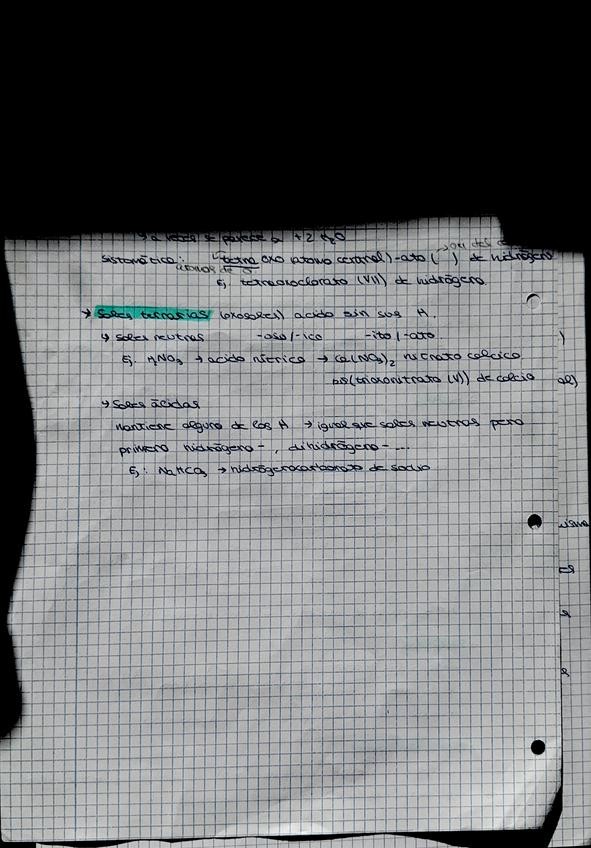 ↳ a veces se parece a +2 H₂O
sistemática: tetra oxo (átomo central)-ato ( ) de hidrógeno
átomos de O
Ej tetraoxoclorato (VII) de hidrógeno
→ Sales ternarias (oxosales) acido sin sus H.
↳ Sales neutras -oso/-ico -ito/-ato
Ej: HNO₃ → acido nítrico → Ca(NO₃)₂ nitrato calcico
bis(trioxonitrato (V)) de calcio
→ Sales ácidas
Mantiene alguno de los H → igual que sales neutras pero
primero hidrógeno-, dihidrógeno-...
Ej: NaHCO₃ → hidrógenocarbonato de sodio